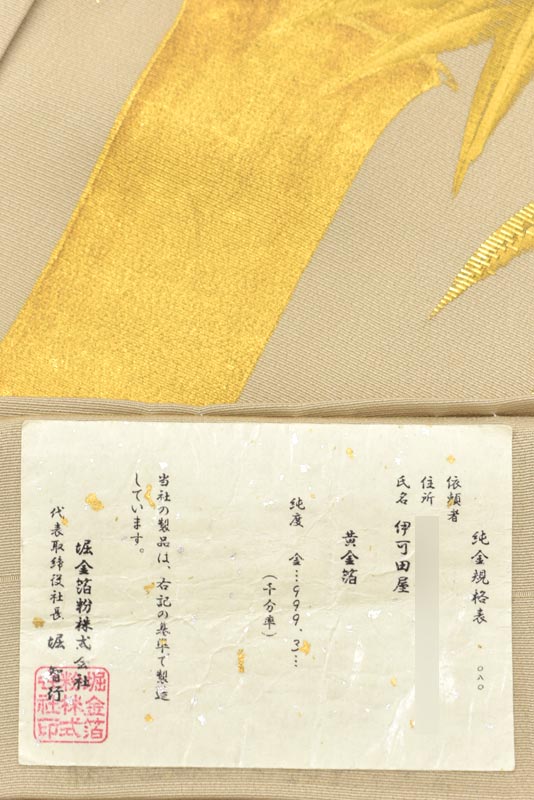 純金規格表
依頼者
住所
氏名 伊可田屋
黄金箔
純度 金…999.3…
(千分率)
当社の製品は、右記の基準で製造
しています。
堀金箔粉株式会社
代表取締役社長 堀 智行
堀金箔
粉株式
会社印